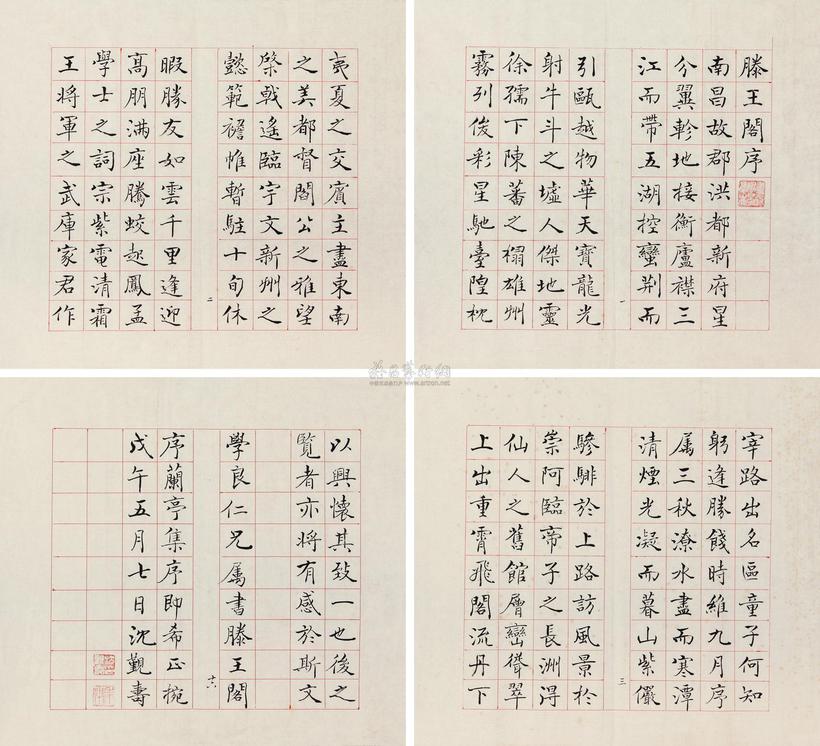 滕王閣序
南昌故郡洪都新府星
分翼軫地接衡廬襟三
江而帶五湖控蠻荆而
一
引甌越物華天寶龍光
射牛斗之墟人傑地靈
徐孺下陳蕃之榻雄州
霧列俊彩星馳臺隍枕
夷夏之交賓主盡東南
之美都督閻公之雅望
棨戟遙臨宇文新州之
二
懿範襜惟暫駐十旬休
暇勝友如雲千里逢迎
高朋滿座騰蛟起鳳孟
學士之詞宗紫電清霜
王將軍之武庫家君作
宰路出名區童子何知
躬逢勝餞時維九月序
属三秋潦水盡而寒潭
清煙光凝而暮山紫儼
三
驂騑於上路訪風景於
崇阿臨帝子之長洲得
仙人之舊館層巒聳翠
上出重霄飛閣流丹下
以興懷其致一也後之
覽者亦將有感於斯文
十六
學良仁兄属書滕王閣
序蘭亭集序即希正捥
戊午五月七日沈覲壽
www.artron.net